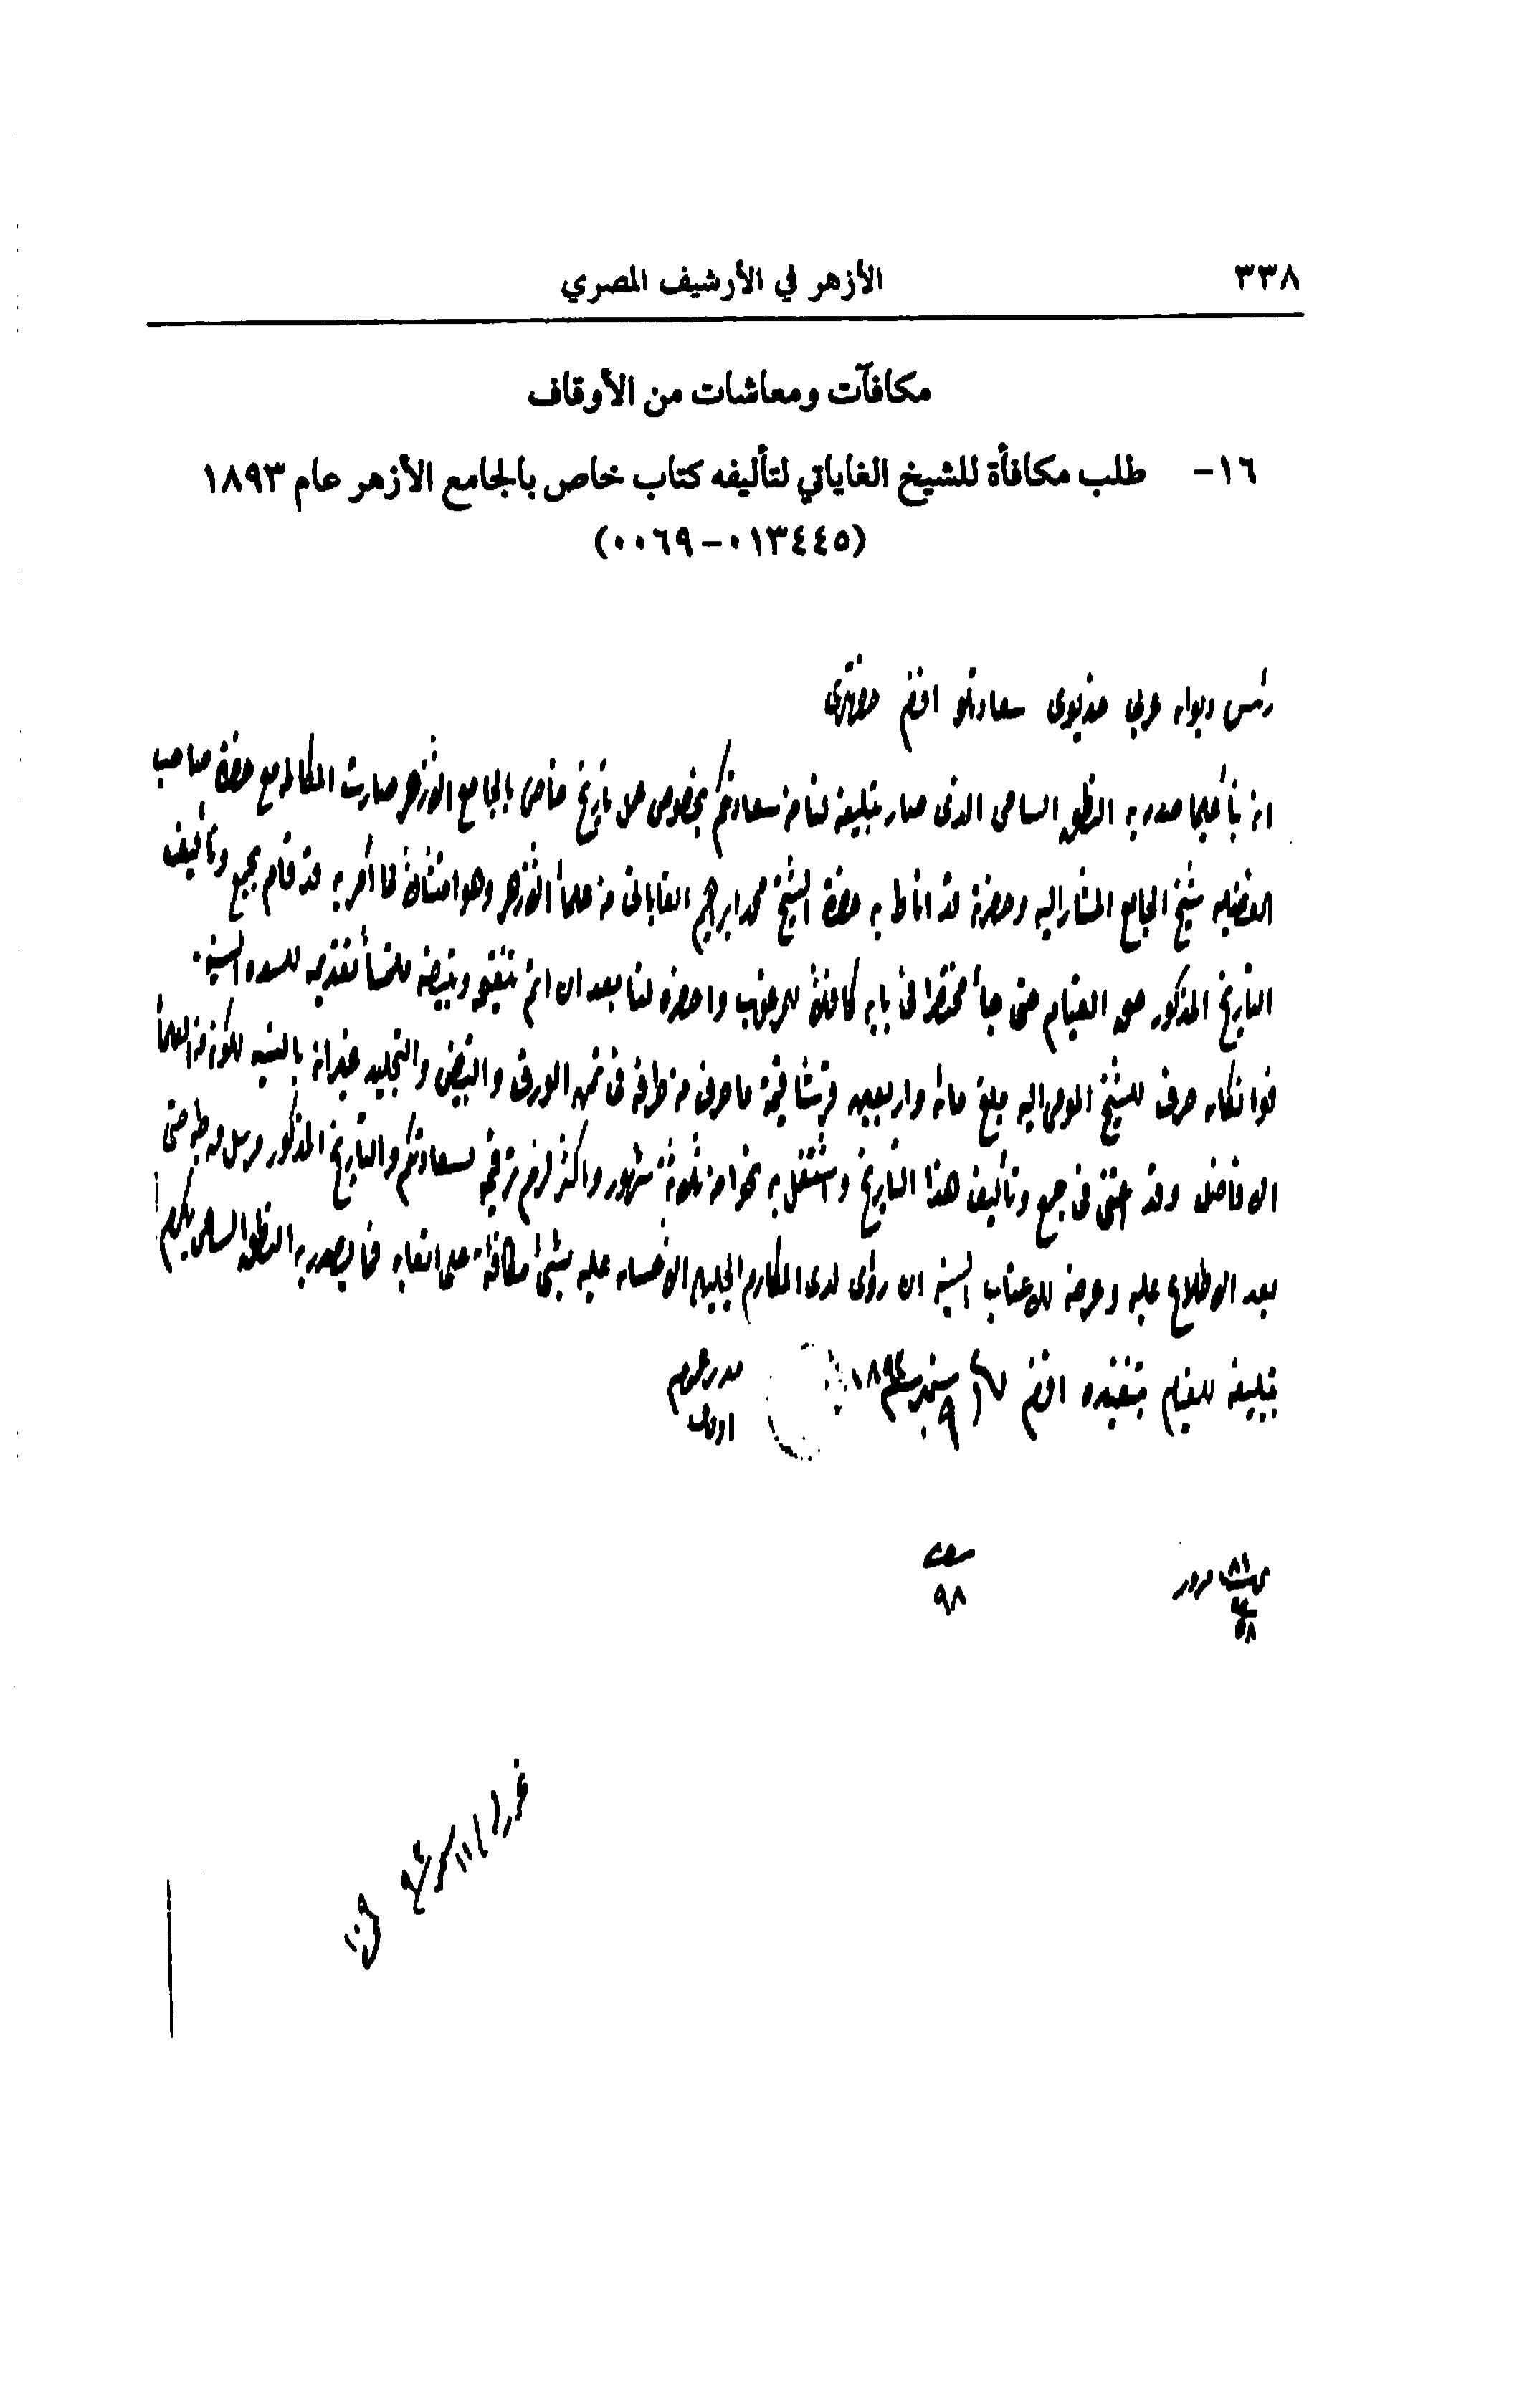 ٣٣٨
الأزهر في الأرشيف المصري
مكافآت ومعاشات من الأوقاف
١٦- طلب مكافأة للشيخ الغاياتي لتأليفه كتاب خاص بالجامع الأزهر عام ١٨٩٣
(٠١٣٤٤٥-٠٠٦٩)
رئيس ديوان عربي خديوى سعادتلو افندم حضرتلرى
انه بناء عليما صدر به النطق السامى الذى صار تبليغه لنا من سعادتكم بخصوص عمل تاريخ خاص بالجامع الازهر صارت المكاتبه مع حضرة صاحب
الفضيله شيخ الجامع المشار اليه وحضرته قد اناط به حضرة الشيخ محمد ابراهيم الغاياتى من علماء الازهر وهو امتثالا لما أمر به قد قام بجمع وتأليف
التاريخ المذكور حق القيام حتى جاء مختصرا فى بابه كافلا للمرغوب واحضره لنا بعد ان اتم تنقيحه وتبييضه ملتمسا تقديمه للسده السنيه
ولو انكان صرف للشيخ المومى اليه مبلغ مايه واربعين قرشا قيمة ما صرف من طرفه فى ثمن الورق والتبييض والتجليد غير انه بالنسبه لكونه من العلماء
الافاضل وقد اعتنى فى جمع وتأليف هذا التاريخ واشتغل به نحوا من ثلاثة شهور واكثر لزم ترقيمه لسعادتكم والتاريخ المذكور مرسل من طيه حتى
بعد الاطلاع عليه وعرضه للاعتاب السنيه ان رؤى لدى المكارم الجليله الاحسان عليه بشئ مكافأة على اتعابه فما يصدر به النطق السامى يكرم
بتبليغه للقيام بتنفيذه افندم
مدير عموم
اوقاف
٩٨